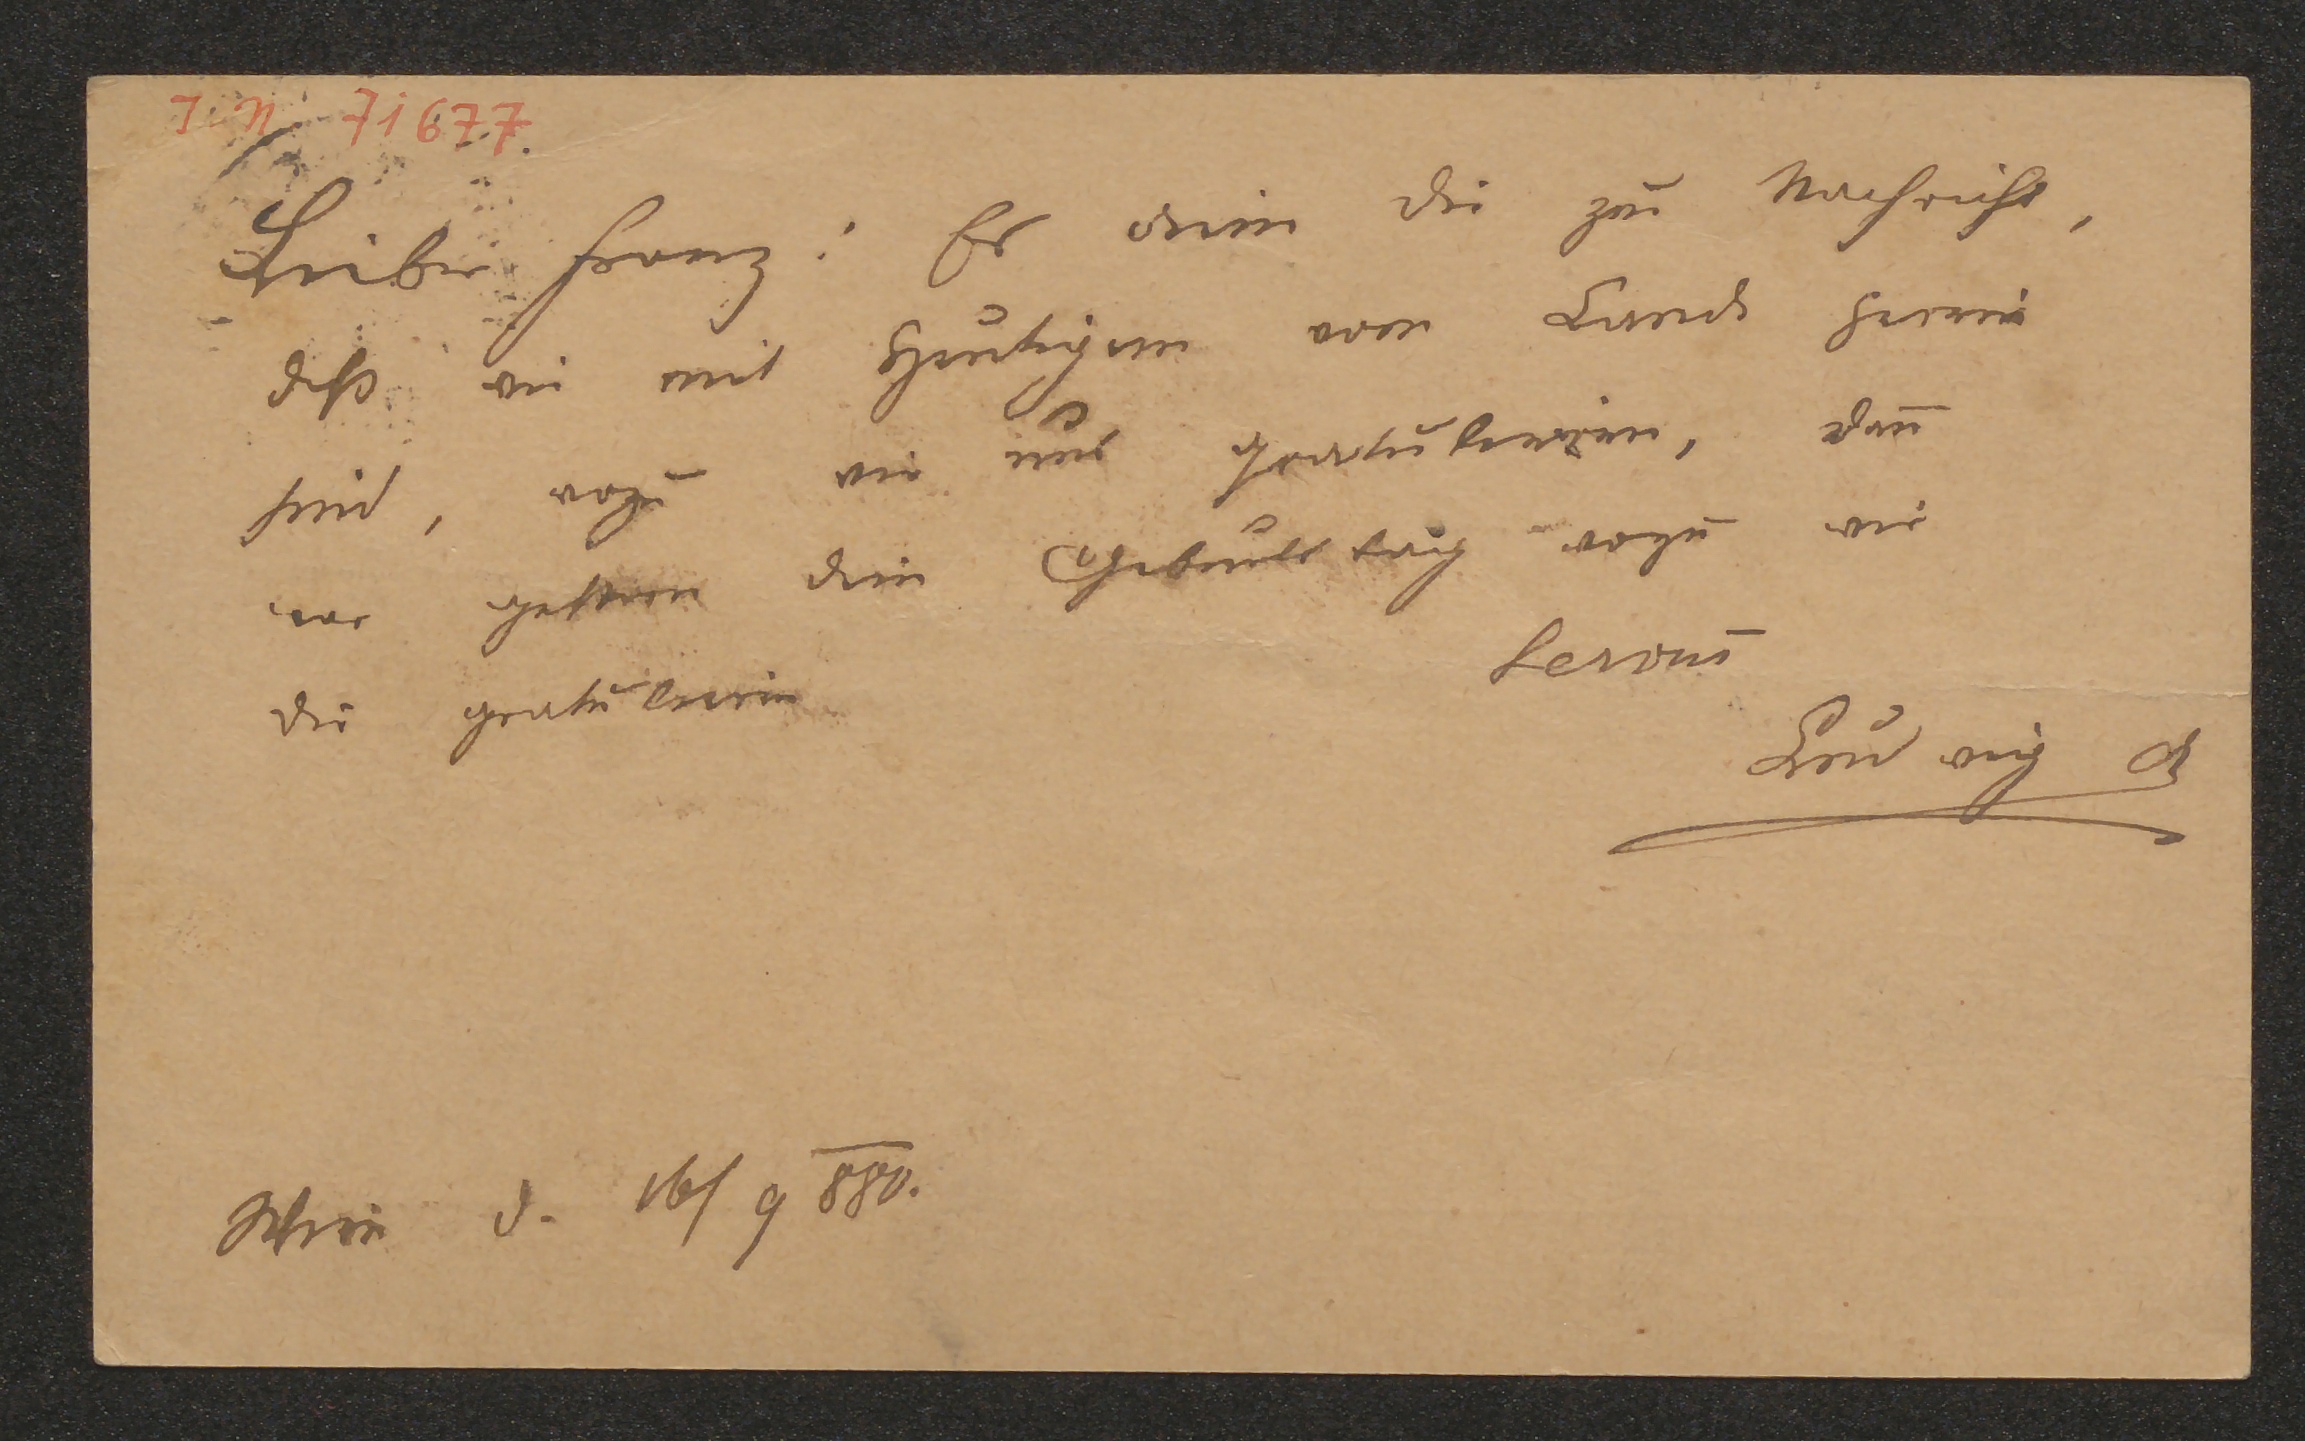 I. N. 71677.
Lieber Franz! Es dein dir zur Nachricht,
daß wir mit Heutigem vom Land herein
sind, wozu wir uns gratulieren, dann
war gestern dein Geburtstag wozu wir
dir gratulieren
Servus
Ludwig
Wien d. 16/9 880.